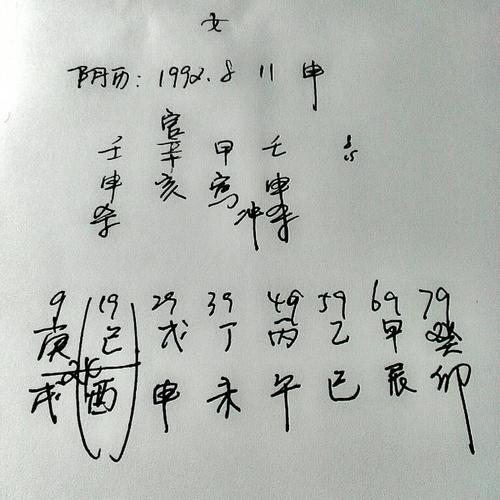 女
阴历：1992.8 11 申
官
壬 辛 甲 壬
申 亥 寅 申
杀 冲 杀
9 19 29 39 49 59 69 79
庚 己 戊 丁 丙 乙 甲 癸
戌 酉 申 未 午 巳 辰 卯